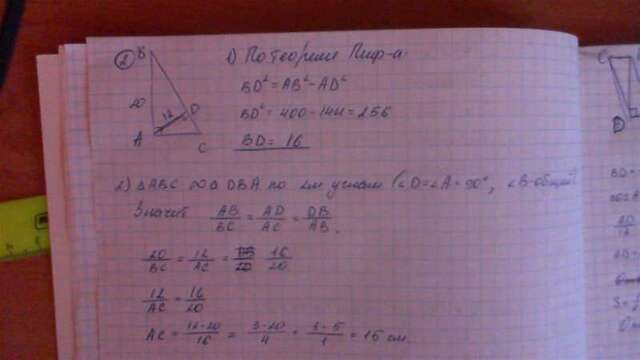 2
B
20
12
D
A
C
1) По теореме Пиф-а
BD² = AB² - AD²
BD² = 400 - 144 = 256
BD = 16
2) △ABC ∾ △DBA по 2м углам (∠D=∠A=90°, ∠B-общий)
Значит AB/BC = AD/AC = DB/AB.
20/BC = 12/AC = 16/20
12/AC = 16/20
AC = 12·20/16 = 3·20/4 = 3·5/1 = 15 см.
C
D
BD =